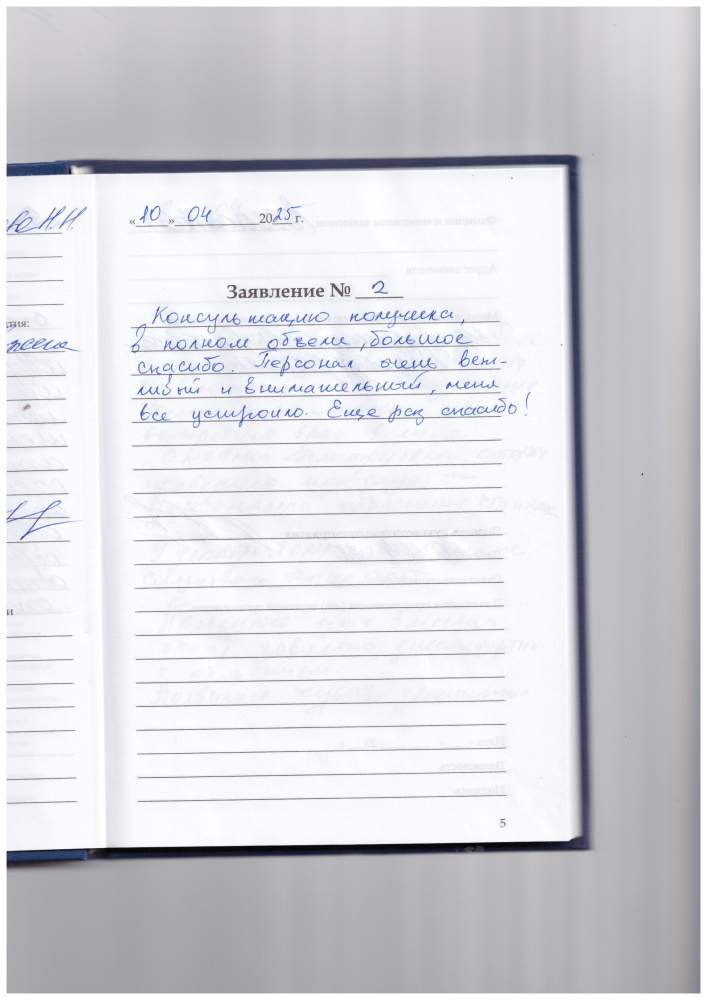 Н.Н.
«10» 04 2025 г.
Заявление № 2
Консультацию получила,
в полном объеме, большое
спасибо. Персонал очень веж-
ливый и внимательный, меня
все устроило. Еще раз спасибо!
5